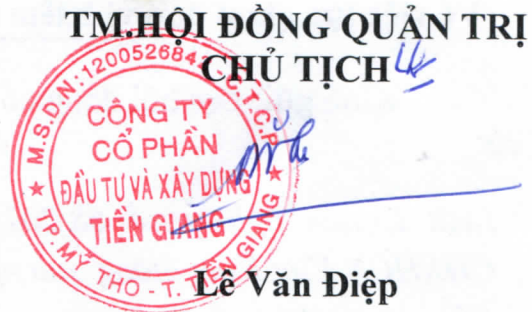 TM.HỘI ĐỒNG QUẢN TRỊ
CHỦ TỊCH
M.S.D.N:1200526842-C.T.C.P
CÔNG TY
CỔ PHẦN
ĐẦU TƯ VÀ XÂY DỰNG
TIỀN GIANG
TP.MỸ THO - T. TIỀN GIANG
Lê Văn Điệp